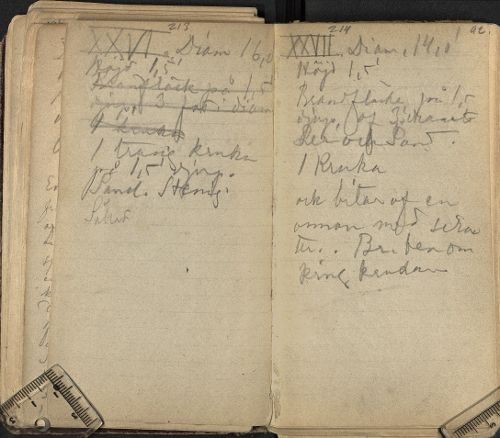 213
XXVI. Diam 16,0
Höjd 1,5'
Brandfläck på 1,5
djup, 3 fot i diam
1 kruka
1 trasig kruka
på 1,5' djup.
Sand. Stenig.
214
92.
XXVII. Diam. 14,0'
Höjd 1,5'
Brandfläck på 1,5
djup, af
Ler och Sand.
1 Kruka
och bitar af en
annan med
Br. ben om
kring krukan